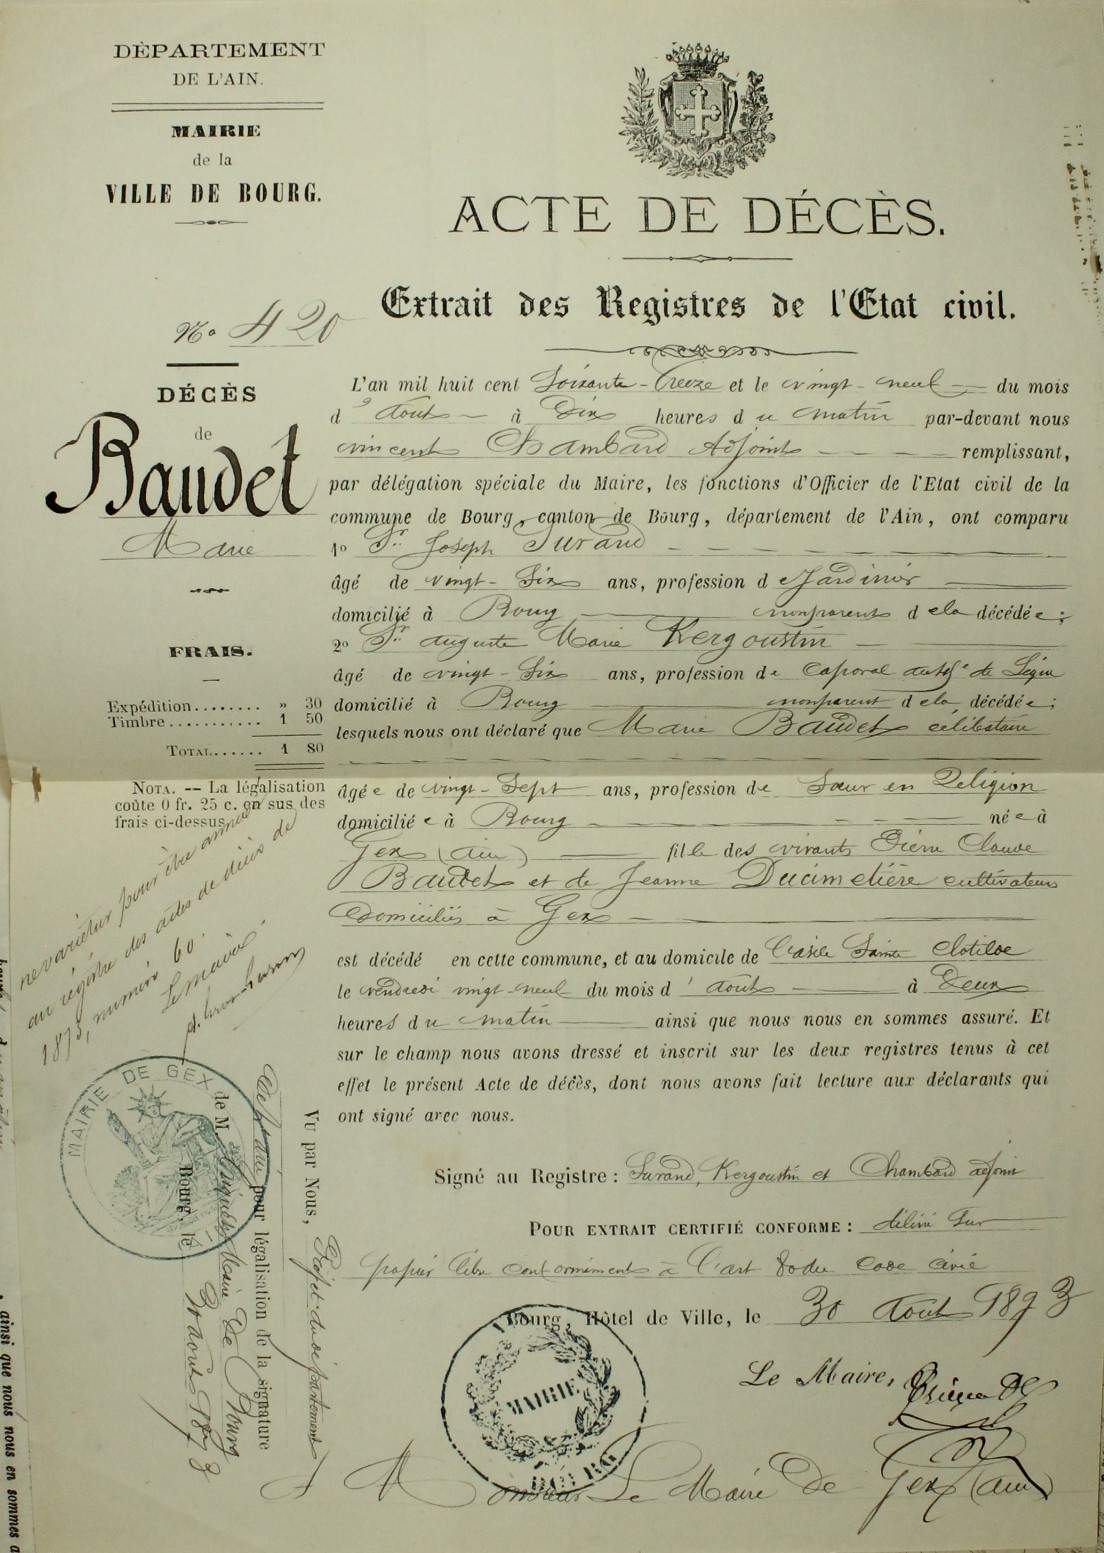 DÉPARTEMENT
DE L'AIN.
MAIRIE
de la
VILLE DE BOURG.
ACTE DE DÉCÈS.
Extrait des Registres de l'Etat civil.
No 420
DÉCÈS
de
Baudet
Marie
FRAIS.
Expédition........ » 30
Timbre........... 1 50
TOTAL...... 1 80
NOTA. -- La légalisation
coûte 0 fr. 25 c. en sus des
frais ci-dessus.
L'an mil huit cent Soixante-Treize et le vingt-neuf du mois
d'Août à Dix heures du matin par-devant nous
vincent Chambard Adjoint remplissant,
par délégation spéciale du Maire, les fonctions d'Officier de l'Etat civil de la
commune de Bourg, canton de Bourg, département de l'Ain, ont comparu
1o Sr Joseph Surand
âgé de vingt-Six ans, profession de Jardinier
domicilié à Bourg non parent de la décédée;
2o Sr auguste Marie Kergoustin
âgé de vingt-Six ans, profession de Caporal de Ligne
domicilié à Bourg non parent de la décédée;
lesquels nous ont déclaré que Marie Baudet célibataire
âgée de vingt-Sept ans, profession de Sœur en Religion
domiciliée à Bourg née à
Gex (ain) fille des vivants Pierre Claude
Baudet et de Jeanne Ducimetière cultivateurs
Domiciliés à Gex
est décédé en cette commune, et au domicile de l'asile Sainte Clotilde
le vendredi vingt-neuf du mois d'août à Deux
heures du matin ainsi que nous nous en sommes assuré. Et
sur le champ nous avons dressé et inscrit sur les deux registres tenus à cet
effet le présent Acte de décès, dont nous avons fait lecture aux déclarants qui
ont signé avec nous.
Signé au Registre : Surand, Kergoustin et Chambard adjoint
POUR EXTRAIT CERTIFIÉ CONFORME : délivré Sur
papier libre conformément à l'art 80 du Code civil
Bourg, Hôtel de Ville, le 30 Août 1873
Le Maire,
Monsieur Le Maire de Gex (ain)
MAIRIE
BOURG
ne varietur pour être annexé
au régistre des actes de décès de
1873, numéro 60.
Le maire
MAIRIE DE GEX
Vu par Nous, Préfet du département
de l'ain pour légalisation de la signature
de M Maire De Bourg
Bourg, le 30 août 1873
, ainsi que nous nous en sommes a